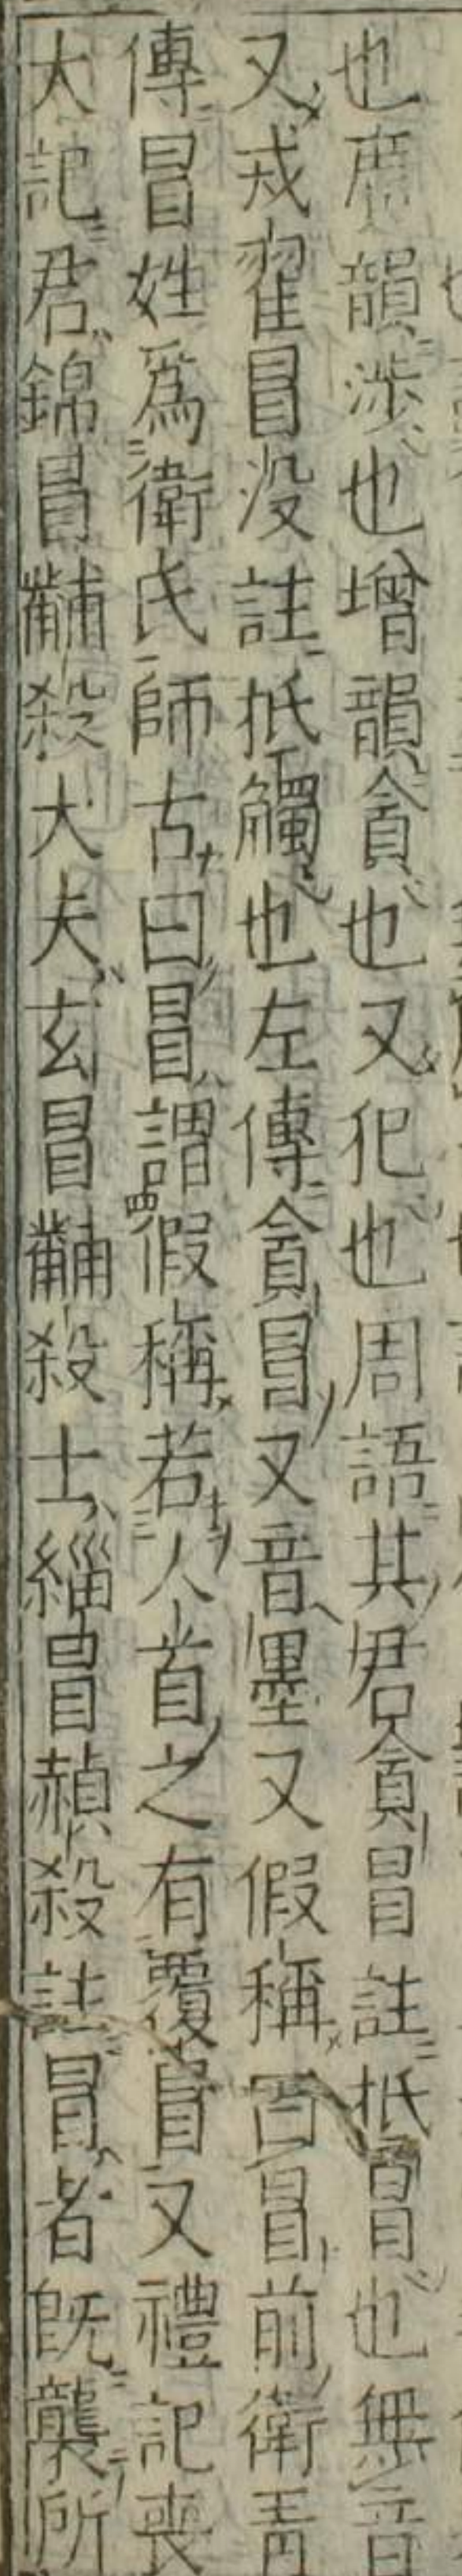 也廣韻涉也增韻貪也又犯也周語其君貪冒註抵冒也無音
又戎翟冒没註抵觸也左傳貪冒又音墨又假稱曰冒前衛青
傳冒姓爲衛氏師古曰冒謂假稱若人首之有覆冒又禮記喪
大記君錦冒黼殺大夫玄冒黼殺士緇冒赬殺註冒者旣襲所